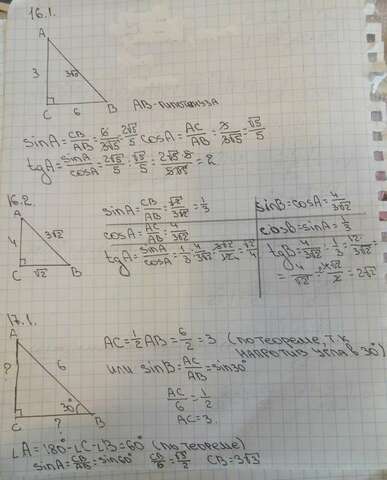 16.1.
A
3
3√5
C 6 B
AB - гипотенуза
sinA = CB/AB = 6/3√5 = 2√5/5 cosA = AC/AB = 3/3√5 = √5/5
tgA = sinA/cosA = 2√5/5 : √5/5 = 2√5·5/5√5 = 2
16.2.
A
4
3√2
C √2 B
sinA = CB/AB = √2/3√2 = 1/3
cosA = AC/AB = 4/3√2
tgA = sinA/cosA = 1/3 : 4/3√2 =
sinB = cosA = 4/3√2
cosB = sinA = 1/3
tgB = 4/3√2 : 1/3 =
= 4/√2 = 4√2/2 = 2√2
17.1.
A
?
6
30°
C ? B
AC = 1/2 AB = 6/2 = 3 (по теореме, т.к
напротив угла в 30°)
или sinB = AC/AB = sin30°
AC/6 = 1/2
AC = 3.
∠A = 180° - ∠C - ∠B = 60° (по теореме)
sinA = CB/AB = sin60° CB/6 = √3/2 CB = 3√3